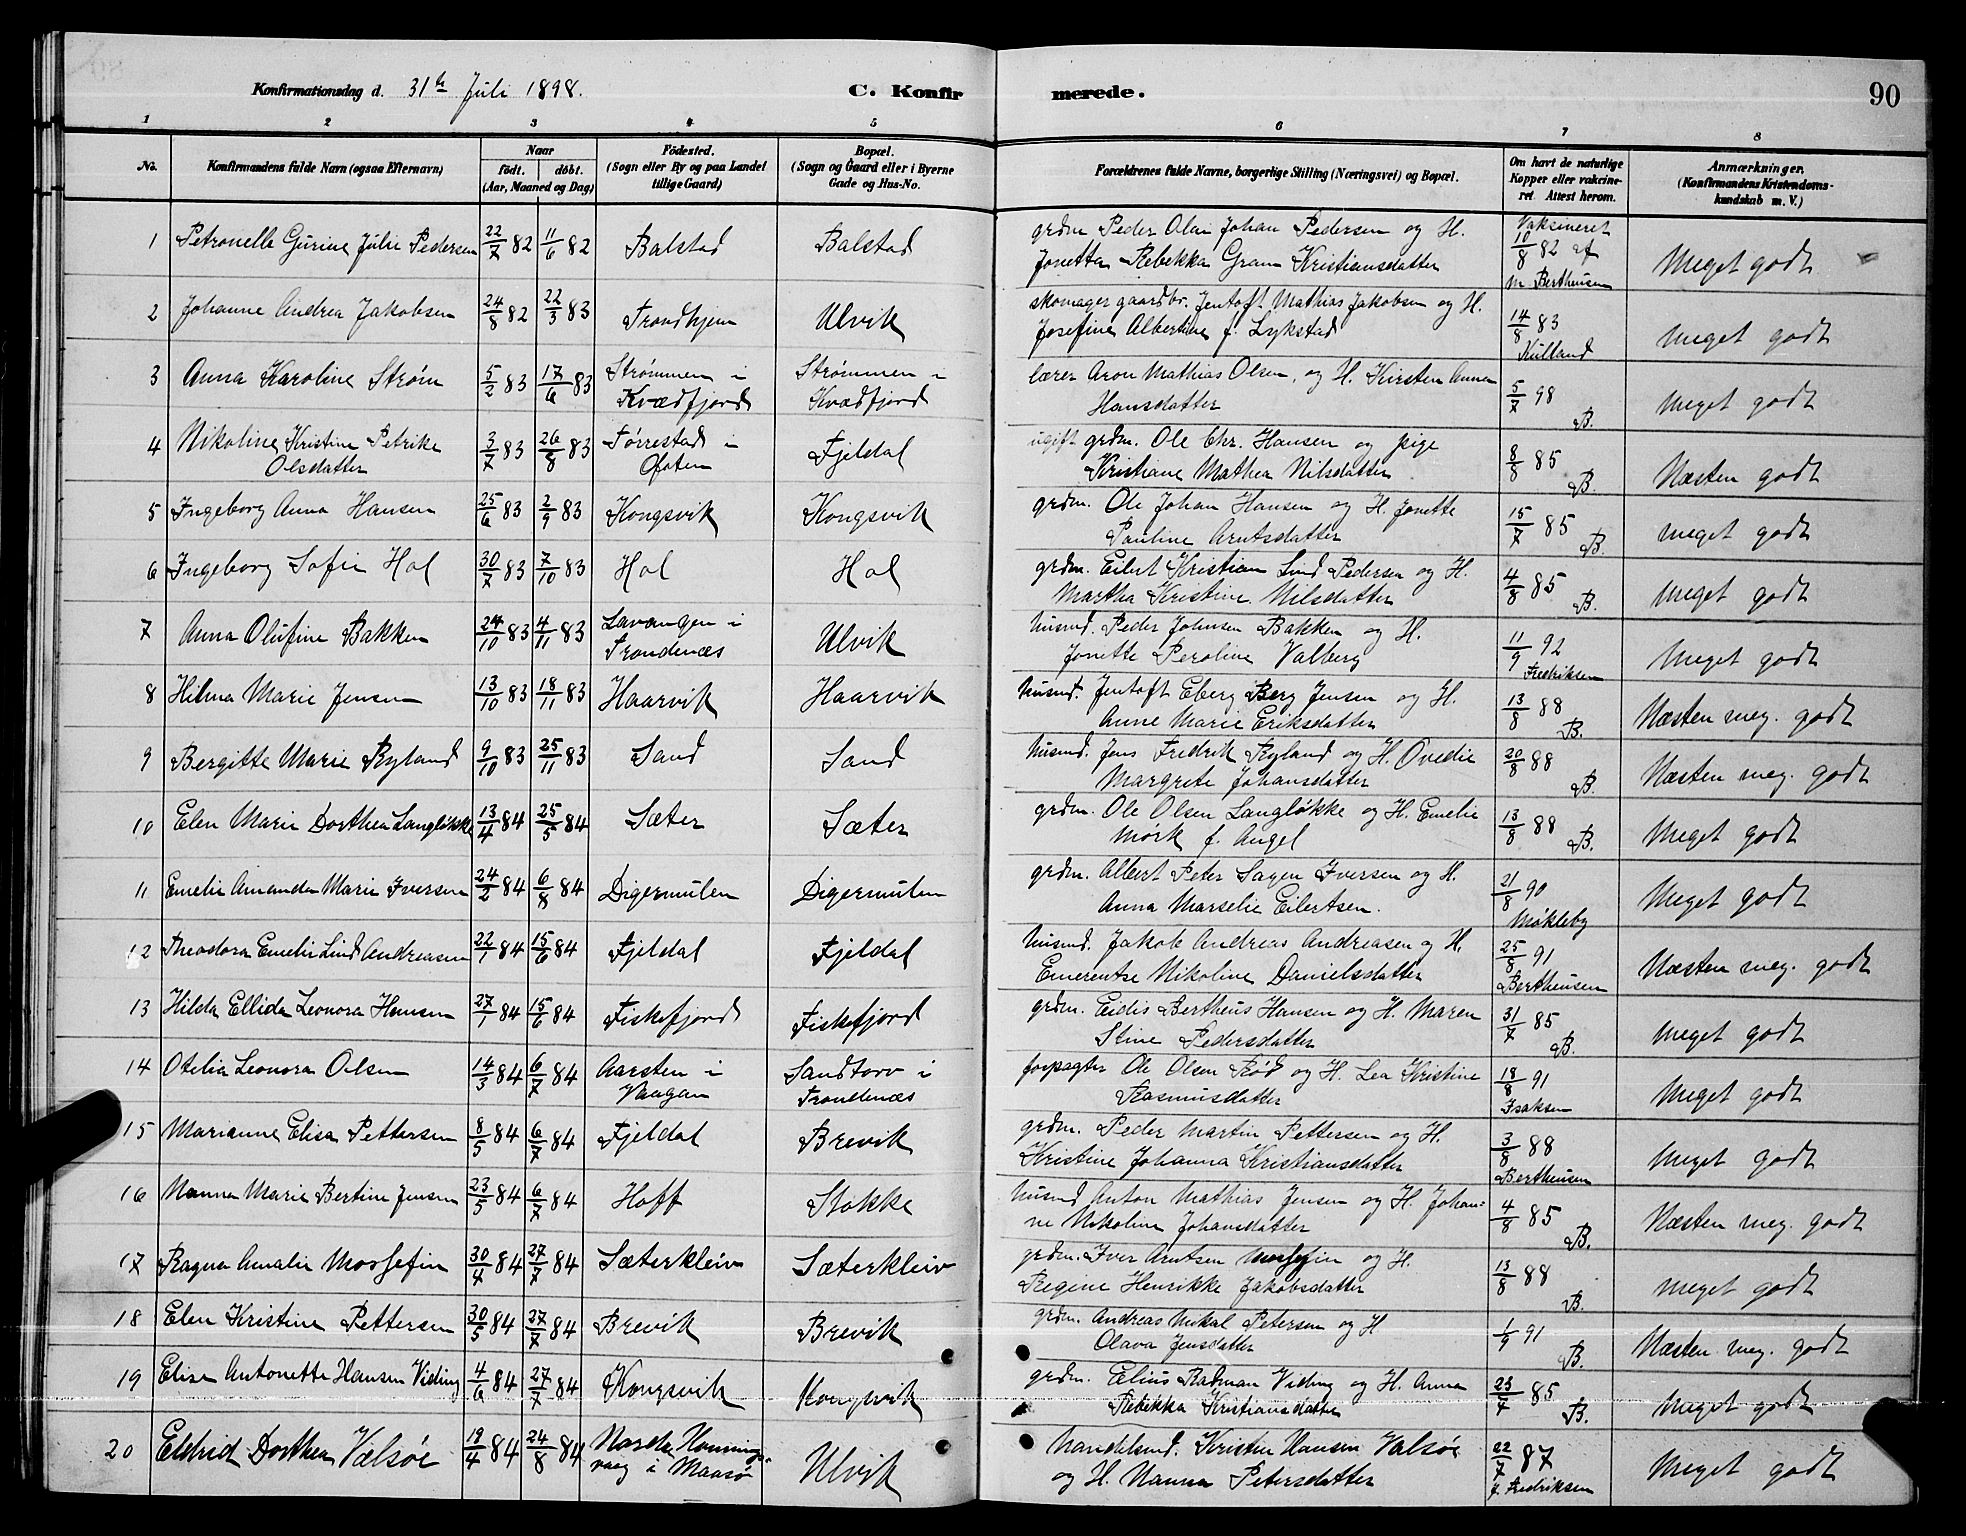 Konfirmationsdag d. 31te Juli 1898. C. Konfirmerede. 90
1 2 3 4 5 6 7 8
No. Konfirmandens fulde Navn (ogsaa Efternavn) Naar födt. döbt. (Aar, Maaned og Dag) Födested. (Sogn eller By og paa Landet tillige Gaard) Bopæl. (Sogn og Gaard eller i Byerne Gade og Hus-No. Forældrenes fulde Navne, borgerlige Stilling (Næringsvei) og Bopæl. Om havt de naturlige Kopper eller vakcineret Attest herom. Anmærkninger. (Konfirmandens Kristendomskundskab m. V.)
1 Petronelle Gurine Julie Pedersen 22/7 82 11/6 82 Balstad Balstad grdm Peder Olai Johan Pedersen og H. Vaksineret
Jonetta Rebekka Gram Kristiansdatter 10/8 82 af m Bertheusen Meget godt
2 Johanne Andrea Jakobsen 24/8 82 22/3 83 Trondhjem Ulvik skomager gaardbr. Jentoft Mathias Jakobsen og H.
Josefine Albertine f. Lykstad 14/8 83 Kulland Meget godt
3 Anna Karoline Strøm 5/2 83 17/6 83 Strømmen i Kvædfjord Strømmen i Kvædfjord lærer Aron Mathias Olsen, og H. Kirsten Anna
Hansdatter 5/7 98 B. Meget godt
4 Nikoline Kristine Petrike Olsdatter 3/7 83 26/8 83 Tørrestad i Ofoten Fjeldal ugift grdm. Ole Chr. Hansen og pige
Kristiane Mathea Nilsdatter 8/8 85 B. Næsten godt
5 Ingeborg Anna Hansen 25/6 83 2/9 83 Kongsvik Kongsvik grdm. Ole Johan Hansen og H. Jonette
Pauline Arntsdatter 15/7 85 B. meget godt
6 Ingeborg Sofie Hol 30/7 83 7/10 83 Hol Hol grdm. Eilert Kristian Lind Pedersen og H.
Martha Kristine Nilsdatter 4/8 85 B. Meget godt
7 Anna Olufine Bakken 24/10 83 4/11 83 Lavangen i Trondenæs Ulvik husmd. Peder Johnsen Bakken og H.
Jonette Peroline Valberg 11/9 92 Fredriksen Meget godt
8 Hilma Marie Jensen 13/10 83 18/11 83 Haarvik Haarvik husmd. Jentoft Eberg Berg Jensen og H.
Anne Marie Eriksdatter 13/8 88 B. Næsten meg. godt
9 Bergitte Marie Ryland 9/10 83 25/11 83 Sand Sand husmd. Jens Fredrik Ryland og H. Ovedie
Margrete Johansdatter 20/8 88 B. Næsten meg. godt
10 Elen Marie Dorthea Langløkke 13/4 84 25/5 84 Sæter Sæter grdm. Ole Olsen Langløkke og H. Emelie
Mørk f. Angel 13/8 88 B. Meget godt
11 Emelie Amanda Marie Iversen 24/2 84 6/8 84 Digermulen Digermulen grdm. Albert Peter Sagen Iversen og H.
Anna Marselie Eilertsen. 21/8 90 Møkleby Meget godt
12 Theodora Emelie Lind Andreasen 22/1 84 15/6 84 Fjeldal Fjeldal husmd. Jakob Andreas Andreasen og H.
Emerentse Nikoline Danielsdatter 25/8 91 Bertheusen Næsten meg. godt
13 Hilda Ellida Leonora Hansen 27/1 84 15/6 84 Fiskefjord Fiskefjord grdm. Eidis Bertheus Hansen og H. Maren
Stine Pedersdatter 31/7 85 B. Meget godt
14 Otelia Leonora Olsen 14/3 84 6/7 84 Aarsten i Vaagan Sandtorv i Trondenæs forpagter Ole Olsen Rød og H. Lea Kristine
Rasmusdatter 18/8 91 Isaksen Meget godt
15 Marianne Elisa Pettersen 8/5 84 6/7 84 Fjeldal Brevik grdm. Peder Martin Pettersen og H.
Kristine Johanna Kristiansdatter 3/8 88 Bertheusen Meget godt
16 Nanna Marie Bertine Jensen 23/5 84 6/7 84 Hoff Stokke husmd Anton Mathias Jensen og H. Johan-
ne Nikoline Johansdatter 4/8 85 B. Næsten meg. godt
17 Ragna Amalie Mossefin 30/4 84 27/7 84 Sæterkleiv Sæterkleiv grdm. Iver Arntsen Mossefin og H.
Regine Henrikke Jakobsdatter 13/8 88 B. Meget godt
18 Elen Kristine Pettersen 30/5 84 27/7 84 Brevik Brevik grdm. Andreas Mikal Petersen og H
Olava Jensdatter 1/9 91 B. Næsten meg. godt
19 Elise Antonette Hansen Viding 4/6 84 27/7 84 Kongsvik Kongsvik grdm. Elius Radman Viding og H. Anna
Rebekka Kristiansdatter 23/7 85 B. Meget godt
20 Eldrid Dorthea Valsøe 19/4 84 24/8 84 Norda Honningsvaag i Maasø Ulvik handelsmd. Kristen Hansen Valsøe
og H. Nanna Petersdatter 22/7 87 J. Fredriksen Meget godt